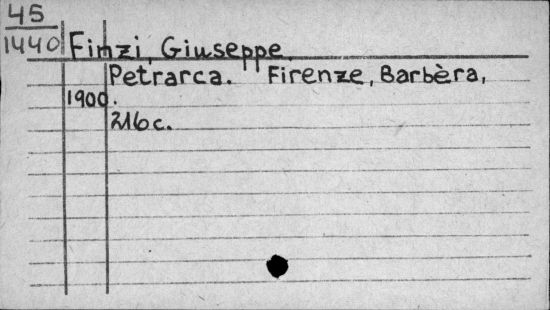 45
1440
Finzi, Giuseppe.
Petrarca. Firenze, Barbèra,
1900.
216 c.